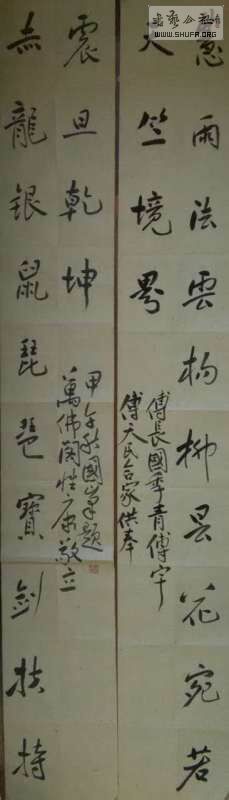 慈雨法雲楊柳曇花宛若
天竺境界
傅長國季青傅宇
傅天民合家供奉
赤龍銀鼠琵琶寶劍扶持
震旦乾坤
甲午秋國峯題
萬佛閣性康敬立
WWW.SHUFA.ORG